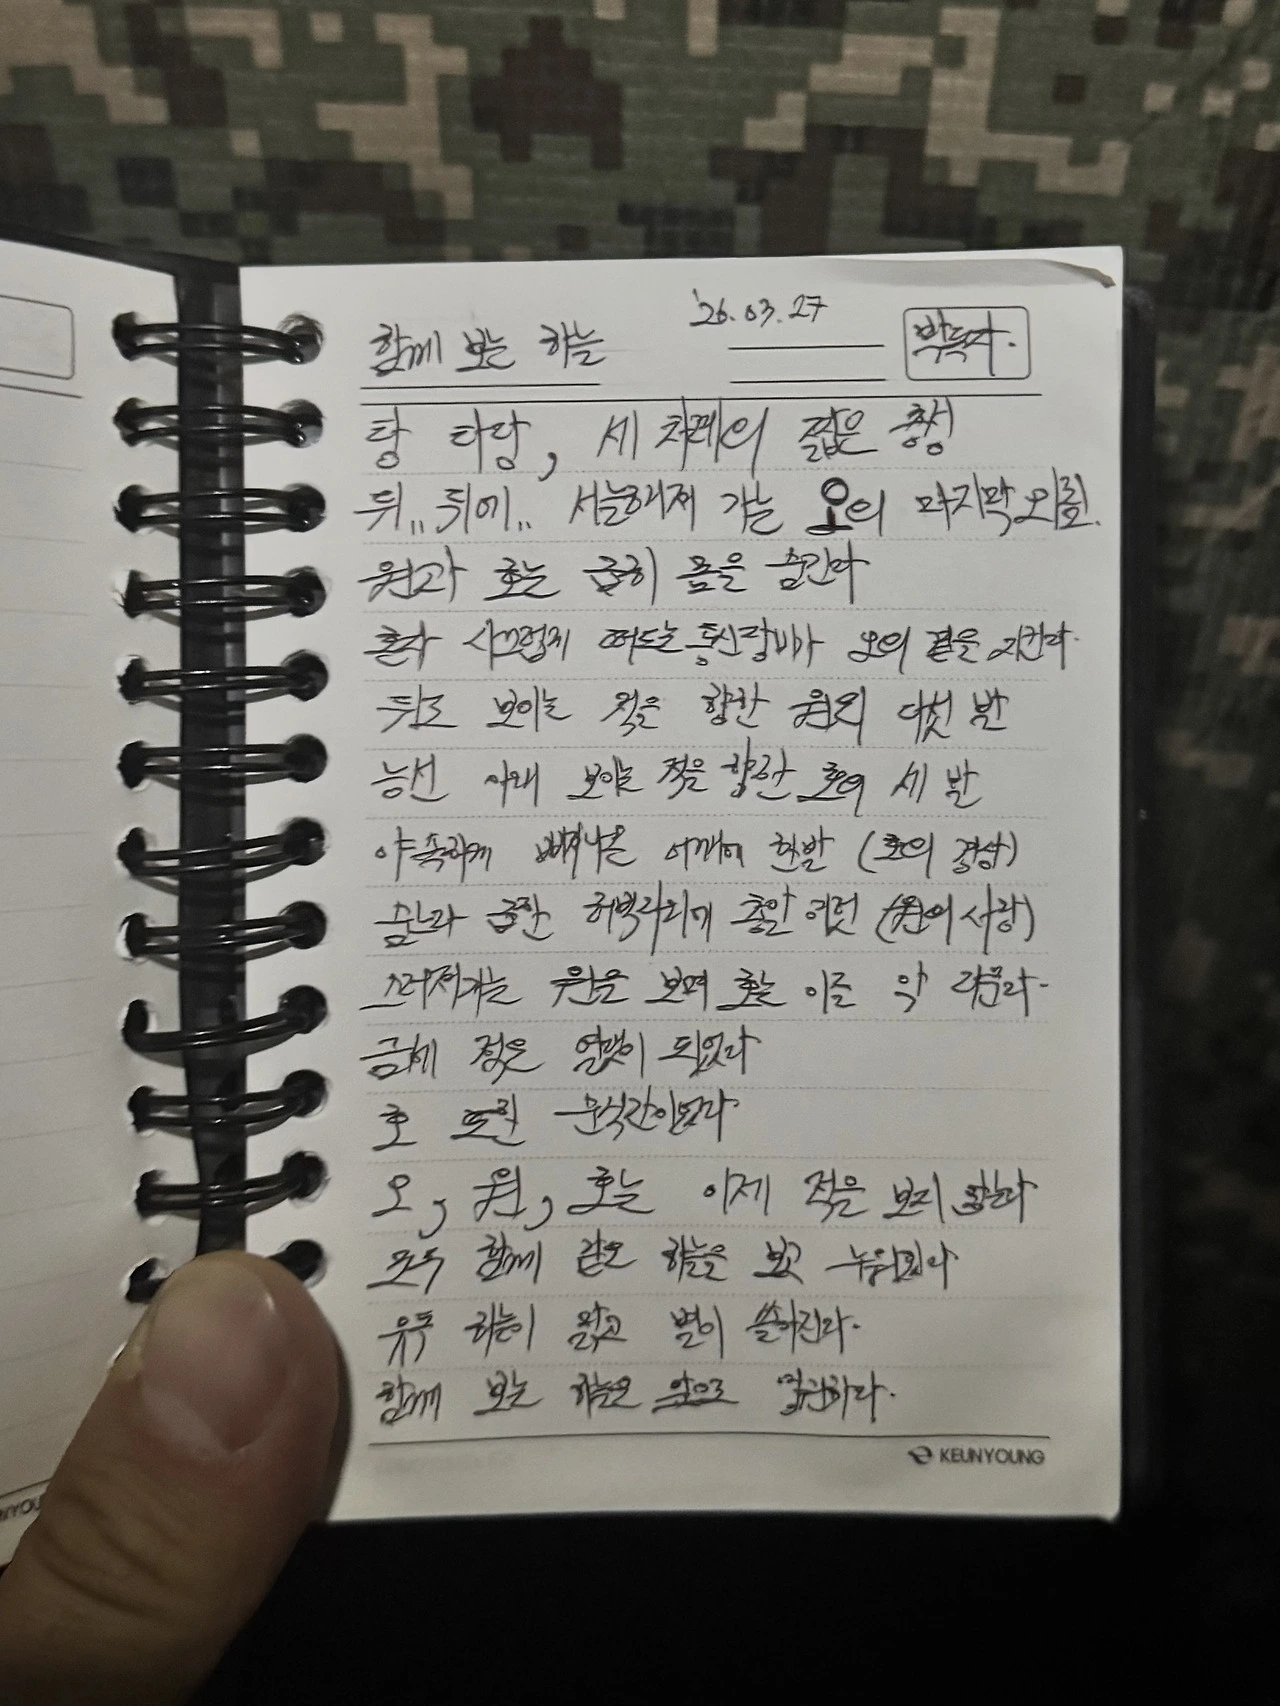 '26.03.27
함께 보는 하늘
박독자.
탕 타당, 세 차례의 짧은 총성
뒤.. 뒤에.. 서늘해져 가는 오의 마지막 외침.
원과 호는 급히 몸을 숨긴다
혼자 시끄럽게 떠드는 통신장비가 오의 곁을 지킨다.
뒤로 보이는 적을 향한 원의 다섯 발
능선 아래 보이는 적을 향한 호의 세 발
야속하게 빠져나온 어깨에 한발 (호의 경상)
숨느라 급한 허벅다리에 총알 여럿 (원의 사망)
쓰러져가는 원을 보며 호는 이를 악 다문다.
금세 젖은 열맷이 되었다
호 또한 순식간이었다.
오, 원, 호는 이제 적을 보지 않는다
모두 함께 같은 하늘을 보고 누워있다
유독 하늘이 맑고 별이 쏟아진다.
함께 보는 하늘은 앞으로 영원하다.
KEUNYOUNG